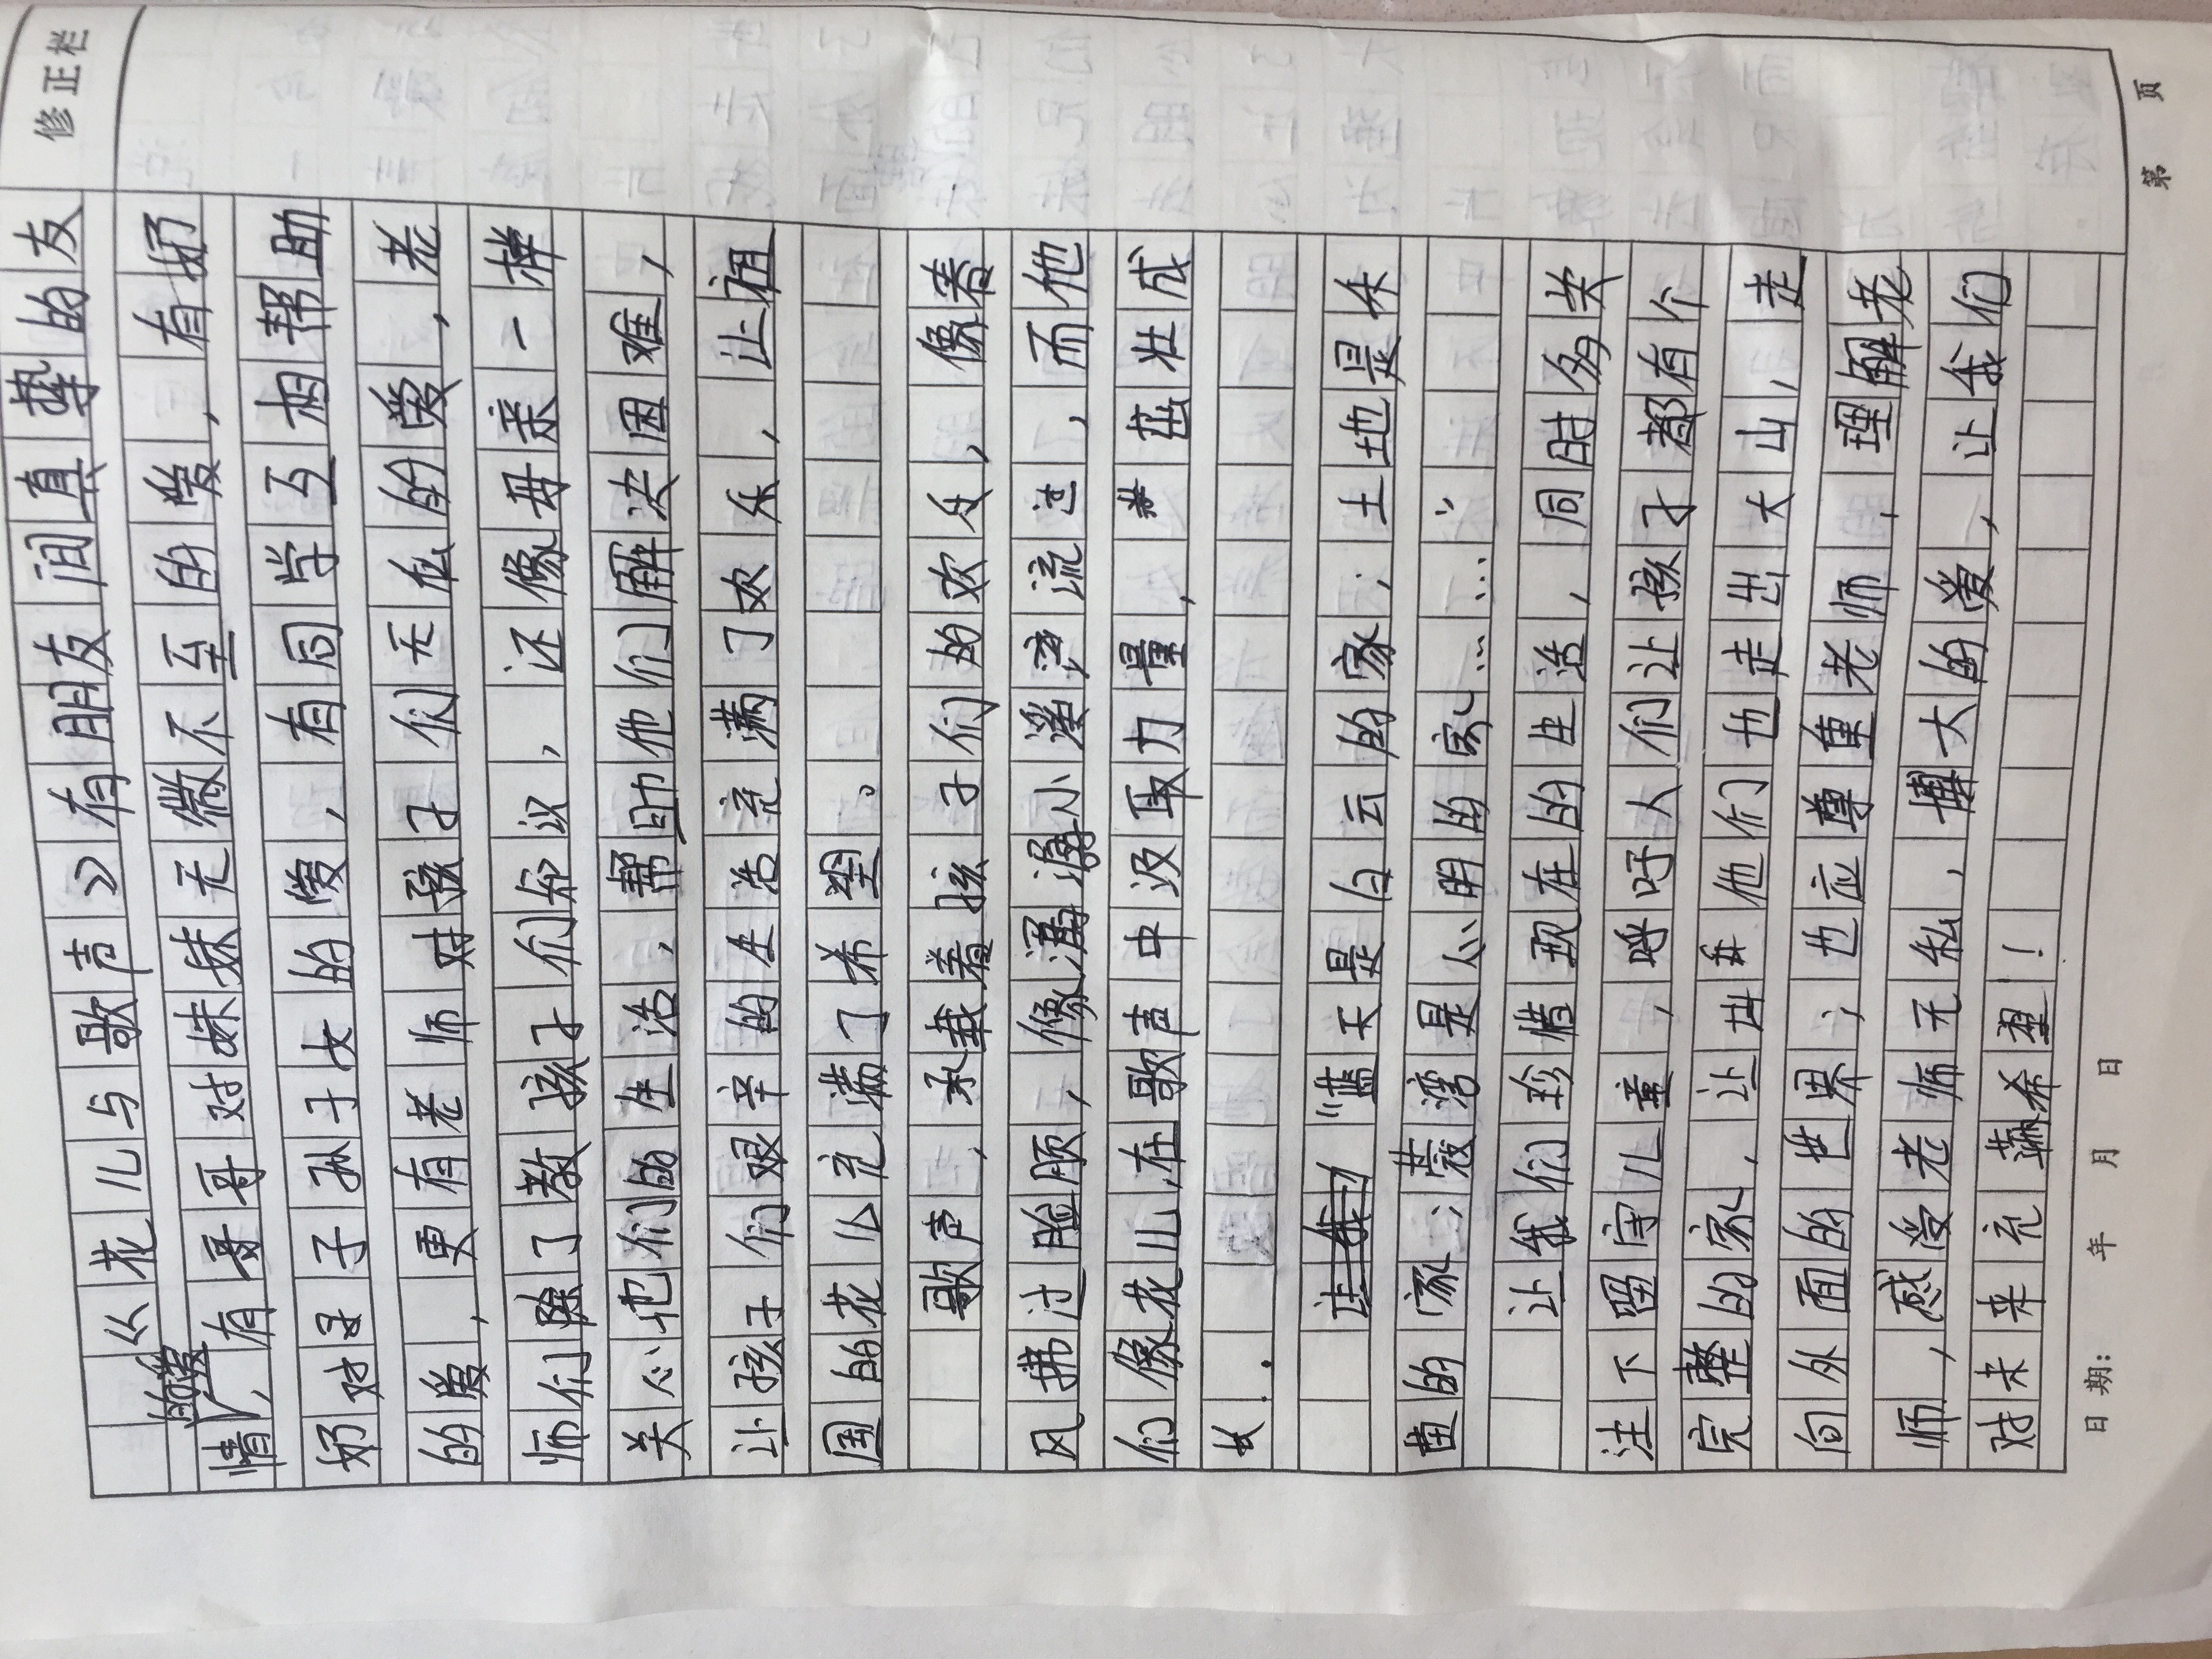 修正栏
从花儿与歌声》有朋友间真挚的友
情的爱,有哥哥对妹妹无微不至的爱,有奶
奶对子孙子女的爱,有同学互相帮助
的爱,更有老师对孩子们无私的爱,老
师们除了教孩子们知识,还像母亲一样
关心他们的生活,帮助他们解决困难,
让孩子们艰辛的生活充满了欢乐,让祖
国的花儿充满了希望。
歌声,承载着孩子们的欢乐,像春
风拂过脸颊,像潺潺小溪流过,而他
们像花儿在歌声中汲取力量,茁壮成
长..
“蓝天是白云的家;土地是禾
苗的家;薇湾是心明的家……”
让我们珍惜现在的生活,同时多关
注下留守儿童,呼吁人们让孩子都有个
完整的家,让他们也走出大山,走
向外面的世界;也应尊重老师,理解老
师,感受老师无私,博大的爱,让我们
对未来充满希望!
日期: 年 月 日
第 页